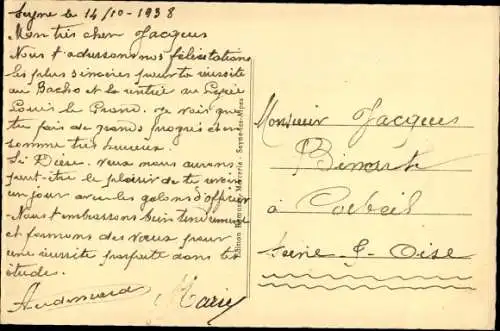 Seyne le 14/10-1938
Mon très cher Jacques
Nous t'adressons nos félicitations
les plus sincères pour ta réussite
au Bacho et ta entrée au Lycée
Louis le Grand. Je vois que
tu fais de grands progrès et en
somme très heureux.
Si Dieu veut nous aurons
peut-être le plaisir de te voir
un jour avec les galons d'officier
Nous t'embrassons bien tendrement
et formons des vœux pour
une réussite parfaite dans tes
étude.
Marie
Edition Marrecla - Seyne-les-Alpes
Monsieur Jacques
à Corbeil
Seine-&-Oise